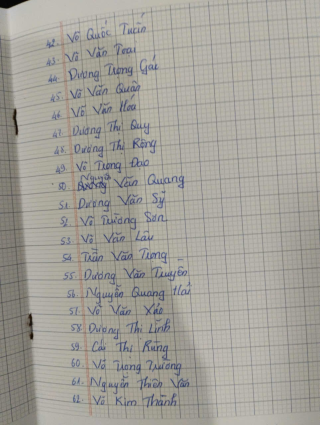 42. Võ Quốc Tuấn
43. Võ Văn Toai
44. Dương Trọng Gác
45. Võ Văn Quân
46. Võ Văn Hóa
47. Dương Thị Quy
48. Dương Thị Rộng
49. Võ Trọng Đạo
50. Nguyễn Văn Quang
51. Dương Văn Sỹ
52. Võ Trường Sơn
53. Võ Văn Lâu
54. Trần Văn Trọng
55. Dương Văn Truyền
56. Nguyễn Quang Hải
57. Võ Văn Xảo
58. Dương Thị Lĩnh
59. Thị Rừng
60. Võ Trọng Trường
61. Nguyễn Thiên Văn
62. Võ Kim Thành